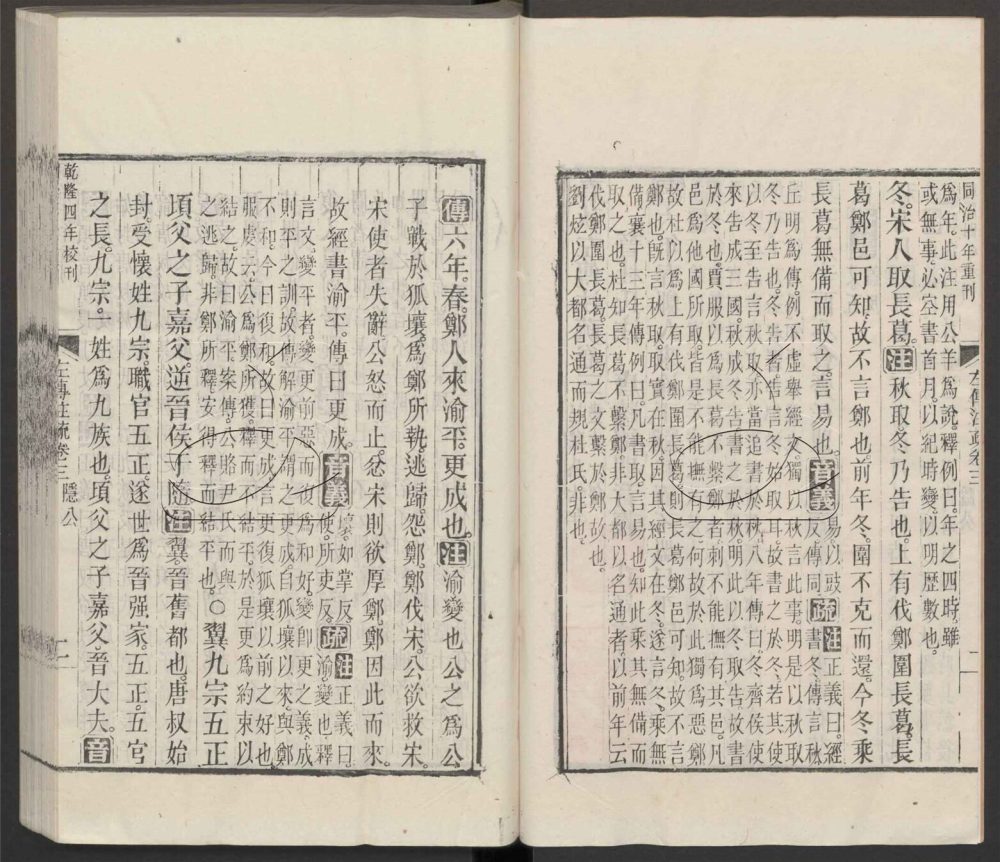 同治十年重刊
爲年此注用公羊爲說釋例曰年之四時雖
或無事必空書首月以紀時變以明歷數也
冬宋人取長葛注秋取冬乃告也上有伐鄭圍長葛長
葛鄭邑可知故不言鄭也前年冬圍不克而還今冬乘
長葛無備而取之言易也音義易以豉反傳同疏注書冬傳言秋正義曰經
丘明爲傳例不虛舉經文獨以秋言此事明是以秋取
冬乃告也冬告者告言冬始取耳故書之於冬若其使
以冬至告言秋取亦當追書於秋八年傳曰冬齊侯使
來告成三國秋成冬告書之於秋明此以冬取告故書
於冬也賈服以爲長葛不繫鄭者刺不能撫有其邑凡
邑爲他國所取皆是不能撫有之何故於此獨爲惡鄭
故杜以爲上有伐鄭圍長葛則長葛鄭邑可知故不言
鄭也旣言秋取取實在秋因其經文在冬遂言冬乘無
備襄十三年傳例曰凡書取言易也知此乘其無備而
取之也杜以長葛不繫鄭非大都以名通者以前年云
伐鄭圍長葛長葛之文繫於鄭故也
劉炫以大都名通而規杜氏非也
傳六年春鄭人來渝平更成也注渝變也公之爲公
子戰於狐壤爲鄭所執逃歸怨鄭鄭伐宋公欲救宋
宋使者失辭公怒而止忿宋則欲厚鄭鄭因此而來
故經書渝平傳曰更成音義壤如掌反使所吏反疏注渝變也正義曰釋
言文變平者變更前惡而復爲和好變卽更之義成
則平之訓故傳解渝平謂之更成自狐壤以來與鄭
不和今日復和故曰更成言更復狐壤以前之好也
服虔云公爲鄭所獲釋而不結平於是更爲約束以
結之故曰渝平案傳公賂尹氏而與
之逃歸非鄭所釋安得釋而結平也○翼九宗五正
頃父之子嘉父逆晉侯于隨注翼晉舊都也唐叔始
封受懷姓九宗職官五正遂世爲晉强家五正五官
之長九宗一姓爲九族也頃父之子嘉父晉大夫音
乾隆四年校刊
左傳注疏卷三隱公